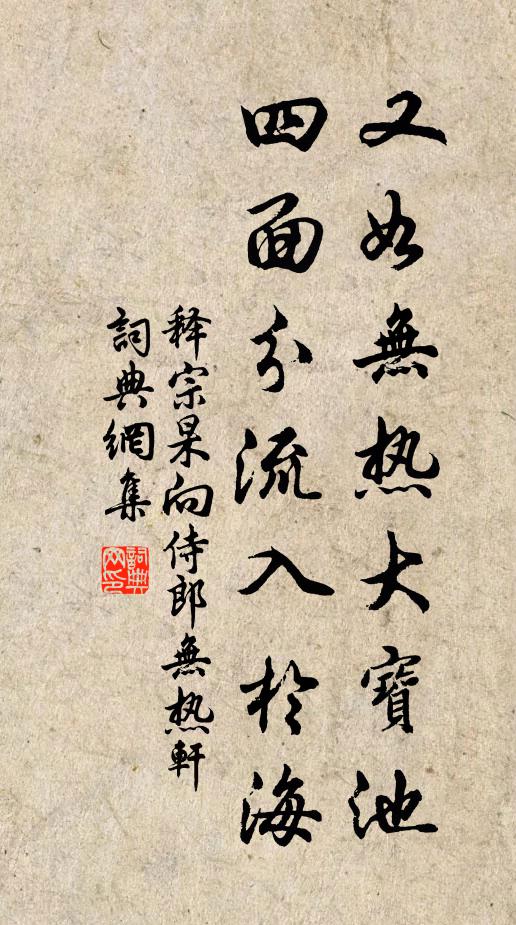 又如無热大寶池
四面分流入於海
释宗杲向侍郎無热軒
詞典網集
詞典網印